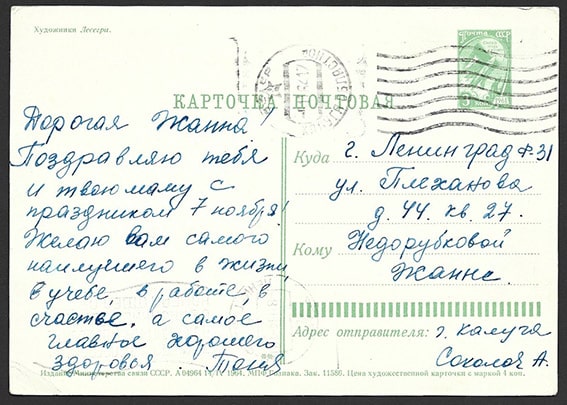 Художник Лесегри.
ПОЧТА СССР
КАРТОЧКА ПОЧТОВАЯ
Дорогая Жанна!
Поздравляю тебя
и твою маму с
праздником 7 ноября!
Желаю вам самого
наилучшего в жизни,
в учебе, в работе, в
счастье, а самое
главное хорошего
здоровья. Таня
Куда г. Ленинград Ф-31
ул. Плеханова
д. 44. кв. 27.
Кому Недорубковой
Жанне.
Адрес отправителя: г. Калуга
Соколов А.
Издание Министерства связи СССР. А 04964 14/IV 1964. МПФ Гознака. Зак. 11586. Цена художественной карточки с маркой 4 коп.